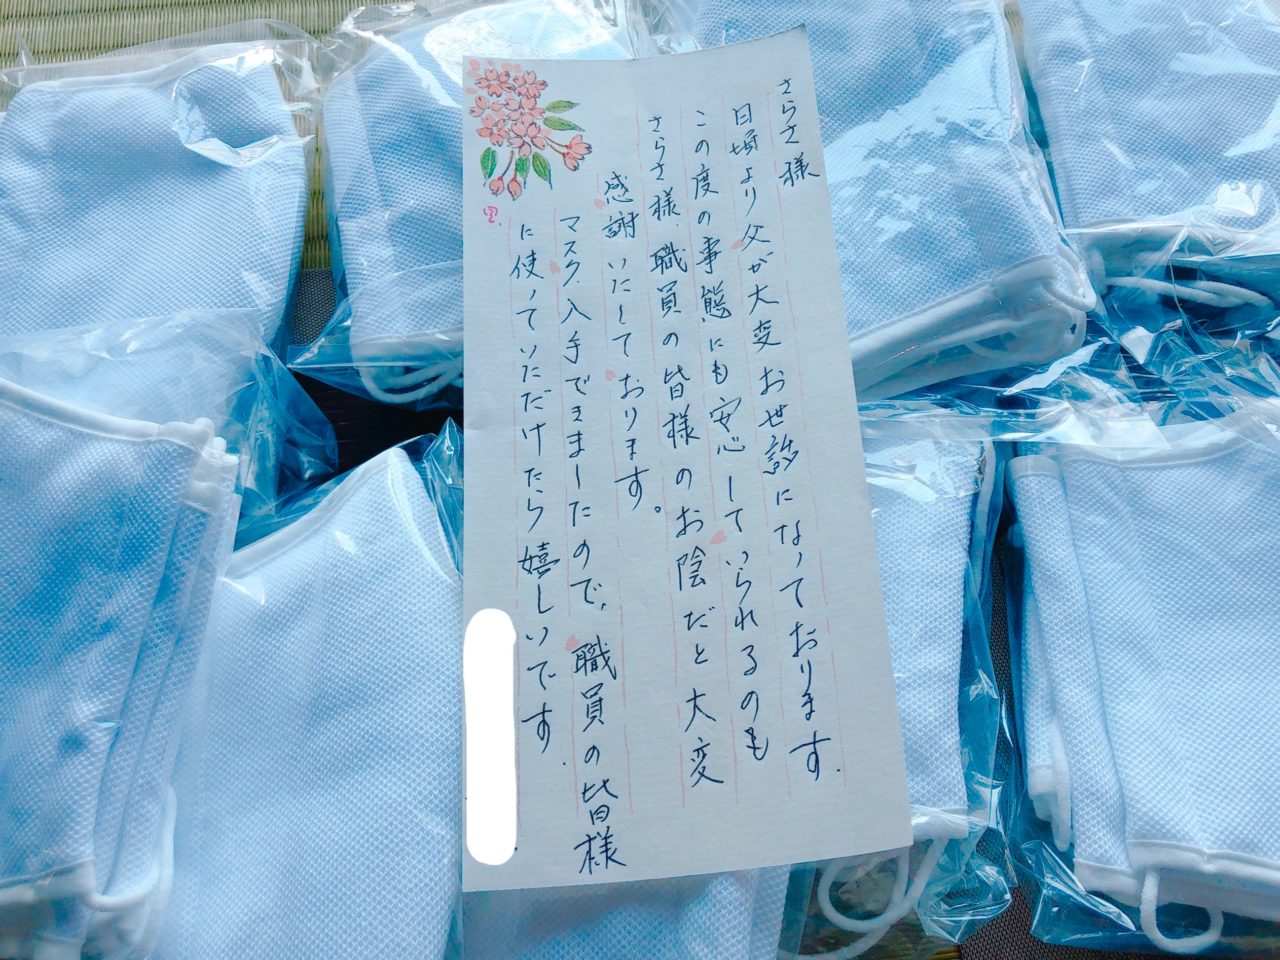 さらさ様
日頃より父が大変お世話になっております.
この度の事態にも安心していられるのも
さらさ様、職員の皆様のお陰だと大変
感謝いたしております。
マスク入手できましたので、職員の皆様
に使っていただけたら嬉しいです.